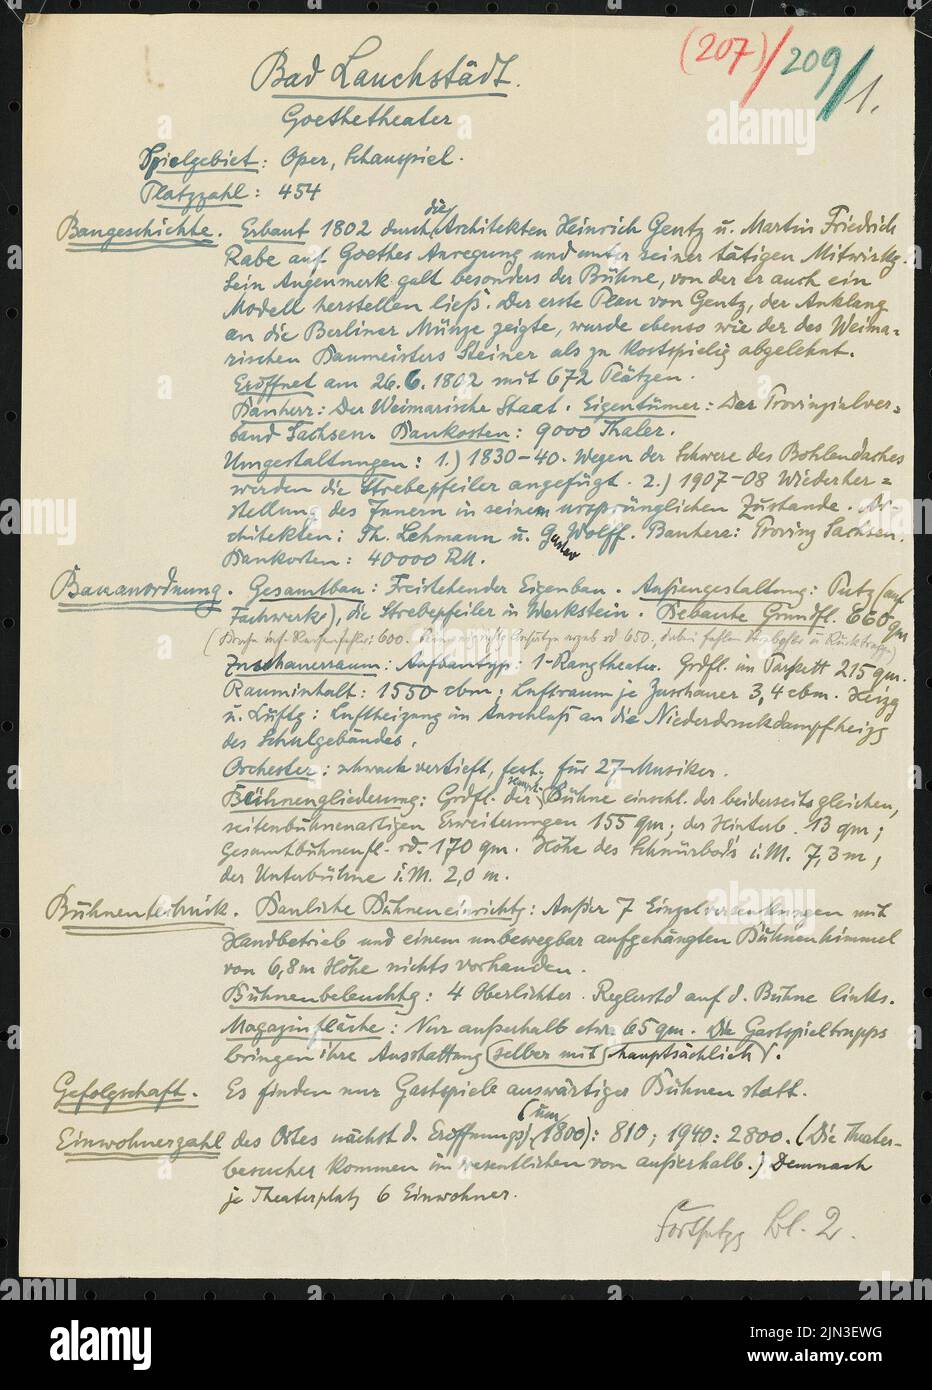 (207)/209/1.
Bad Lauchstädt.
Goethetheater
Spielgebiet: Oper, Schauspiel.
Platzzahl: 454
Baugeschichte. Erbaut 1802 durch die Architekten Heinrich Gentz u. Martin Friedrich
Rabe auf Goethes Anregung und unter seiner tätigen Mitwirkg.
Sein Augenmerk galt besonders der Bühne, von der er auch ein
Modell herstellen ließ. Der erste Plan von Gentz, der Anklang
an die Berliner Münze zeigte, wurde ebenso wie der des Weima-
rischen Baumeisters Steiner als zu kostspielig abgelehnt.
Eröffnet am 26.6.1802 mit 672 Plätzen.
Bauherr: Der Weimarische Staat. Eigentümer: Der Provinzialver-
band Sachsen. Baukosten: 9000 Thaler.
Umgestaltungen: 1.) 1830-40. Wegen der Schwere des Bohlendaches
werden die Strebepfeiler angefügt. 2.) 1907-08 Wiederher-
stellung des Innern in seinem ursprünglichen Zustande. Ar-
chitekten: Th. Lehmann u. Gustav Wolff. Bauherr: Provinz Sachsen.
Baukosten: 40000 RM.
Bauanordnung. Gesamtbau: Freistehender Eigenbau. Außengestaltung: Putz (auf
Fachwerk), die Strebepfeiler in Werkstein. Bebaute Grundfl. 660 qm
600. 650,
Zuschauerraum: Aufbautyp: 1-Rangtheater. Grdfl. im Parkett 215 qm.
Rauminhalt: 1550 cbm; Luftraum je Zuschauer 3,4 cbm. Heizg
u. Lüftg: Luftheizung im Anschluß an die Niederdruckdampfheizg
des Schulgebäudes.
Orchester: schwach vertieft, fest. für 27 Musiker.
Bühnengliederung: Grdfl. der Haupt-Bühne einschl. der beiderseits gleichen,
seitenbühnenartigen Erweiterungen 155 qm; der Hinterb. 13 qm;
Gesamtbühnenfl. rd. 170 qm. Höhe des Schnürbod's i.M. 7,3 m,
der Unterbühne i.M. 2,0 m.
Bühnentechnik. Bauliche Bühneneinrichtg: Außer 7 Einzelversenkungen mit
Handbetrieb und einem unbewegbar aufgehängten Bühnenhimmel
von 6,8 m Höhe nichts vorhanden.
Bühnenbeleuchtg: 4 Oberlichter. Reglerstd auf d. Bühne links.
Magazinfläche: Nur außerhalb etwa 65 qm. Die Gastspieltrupps
bringen ihre Ausstattung (selber mit) hauptsächlich.
Gefolgschaft. Es finden nur Gastspiele auswärtiger Bühnen statt.
Einwohnerzahl des Ortes nächst d. Eröffnungsj. (um 1800): 810; 1940: 2800. (Die Theater-
besucher kommen im wesentlichen von außerhalb.) Demnach
je Theaterplatz 6 Einwohner.
Fortsetzg Bl. 2.
alamy
Image ID: 2JN3EWG
www.alamy.com